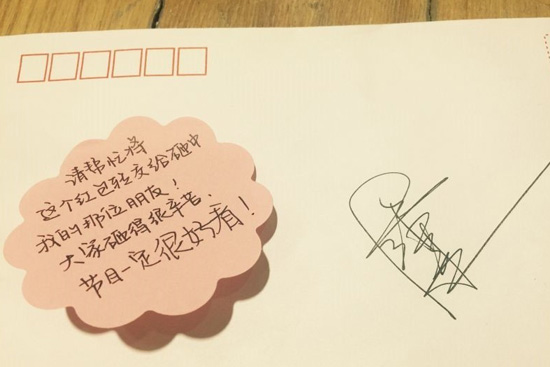 请帮忙将
这个红包转交给砸中
我的那位朋友！
大家砸得很辛苦、
节目一定很好看！